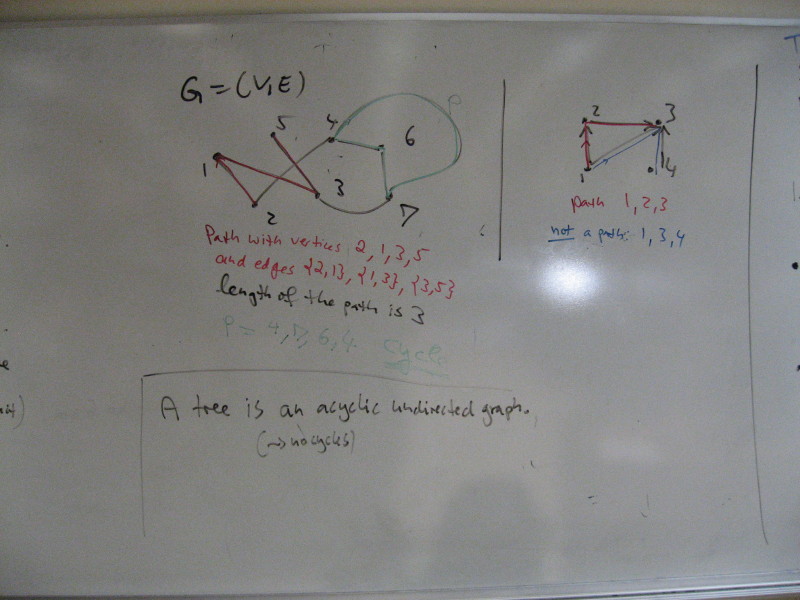 G = (V, E)
5
4
6
1
3
2
7
P
Path with vertices 2, 1, 3, 5
and edges {2,1}, {1,3}, {3,5}
length of the path is 3
P = 4, 7, 6, 4. Cycle
A tree is an acyclic undirected graph.
(⇝ no cycles)
2
3
1
4
path 1, 2, 3
not a path: 1, 3, 4
T